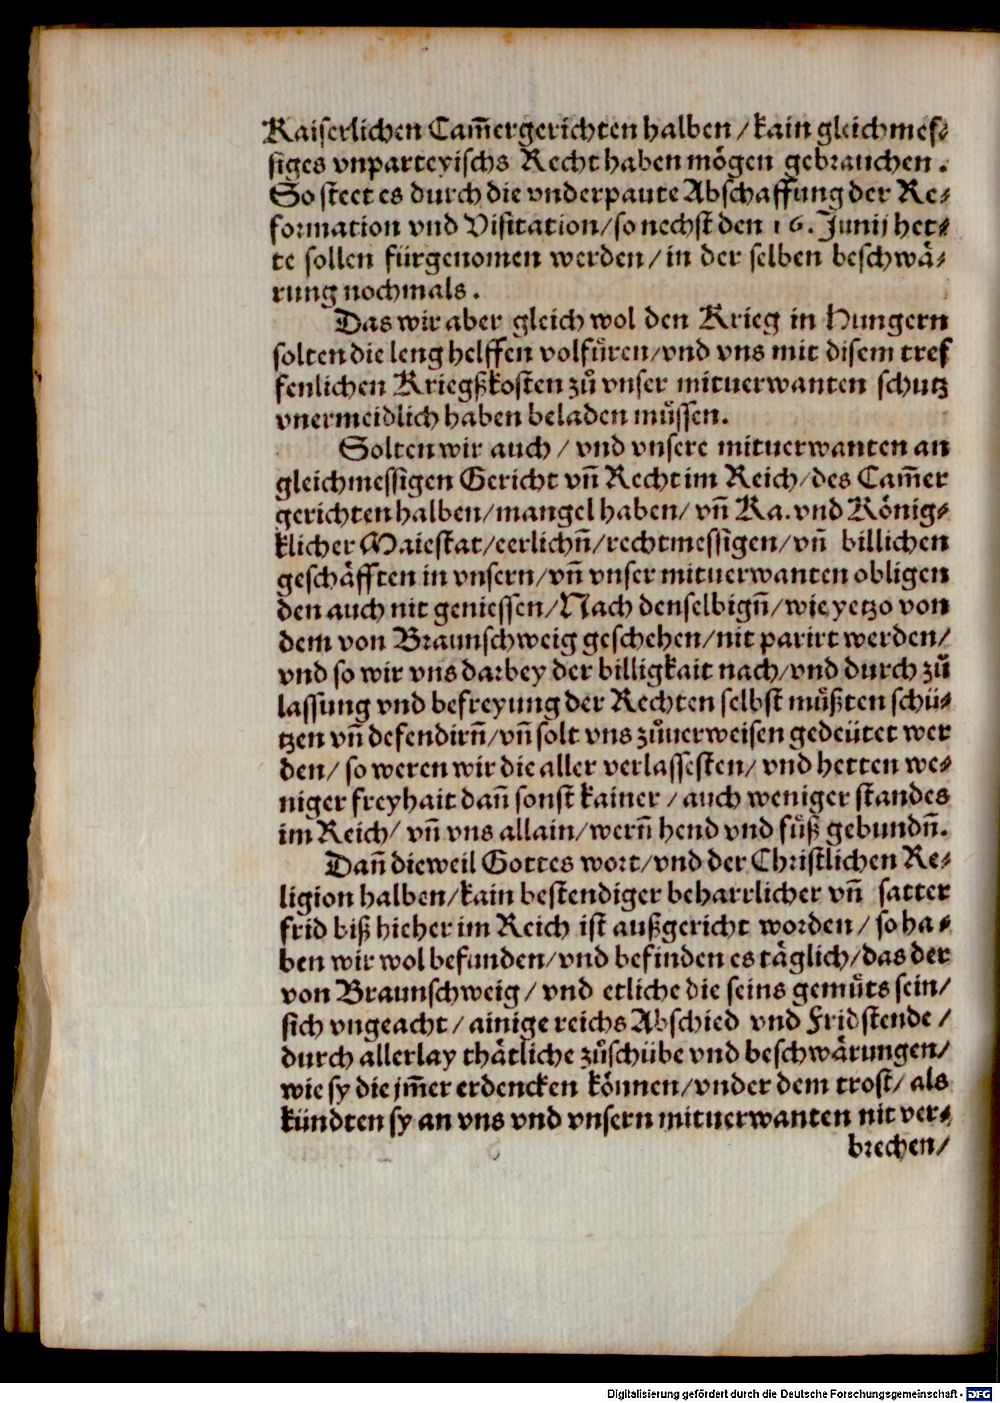 Kaiserlichen Cam̃ergerichten halben / kain gleichmes⸗
siges vnparteyischs Recht haben mögen gebrauchen.
So steet es durch die vnderpaute Abschaffung der Re⸗
formation vnd Visitation / so nechst den 16. Junij het⸗
te sollen fürgenomen werden / in der selben beschwä⸗
rung nochmals.
Das wir aber gleich wol den Krieg in Hungern
solten die leng helffen volfüren / vnd vns mit disem tref
fenlichen Kriegßkosten zů vnser mituerwanten schutz
vnermeidlich haben beladen müssen.
Solten wir auch / vnd vnsere mituerwanten an
gleichmessigen Gericht vñ Recht im Reich / des Cam̃er
gerichten halben / mangel haben / vñ Ka. vnd König⸗
klicher Maiestat / eerlichñ / rechtmessigen / vñ billichen
geschäfften in vnsern / vñ vnser mituerwanten obligen
den auch nit geniessen / Nach denselbigñ / wie yetzo von
dem von Braunschweig geschehen / nit parirt werden /
vnd so wir vns darbey der billigkait nach / vnd durch zů
lassung vnd befreyung der Rechten selbst müßten schü⸗
tzen vñ defendirñ / vñ solt vns zůuerweisen gedeütet wer
den / so weren wir die aller verlassesten / vnd hetten we⸗
niger freyhait dañ sonst kainer / auch weniger standes
im Reich / vñ vns allain / werñ hend vnd füß gebundñ.
Dañ dieweil Gottes wort / vnd der Christlichen Re⸗
ligion halben / kain bestendiger beharrlicher vñ satter
frid biß hieher im Reich ist außgericht worden / so ha⸗
ben wir wol befunden / vnd befinden es täglich / das der
von Braunschweig / vnd etliche die seins gemüts sein /
sich vngeacht / ainige reichs Abschied vnd Fridstende /
durch allerlay thätliche zůschübe vnd beschwärungen /
wie sy die jm̃er erdencken können / vnder dem trost / als
kündten sy an vns vnd vnsern mituerwanten nit ver⸗
brechen /
Digitalisierung gefördert durch die Deutsche Forschungsgemeinschaft - DFG